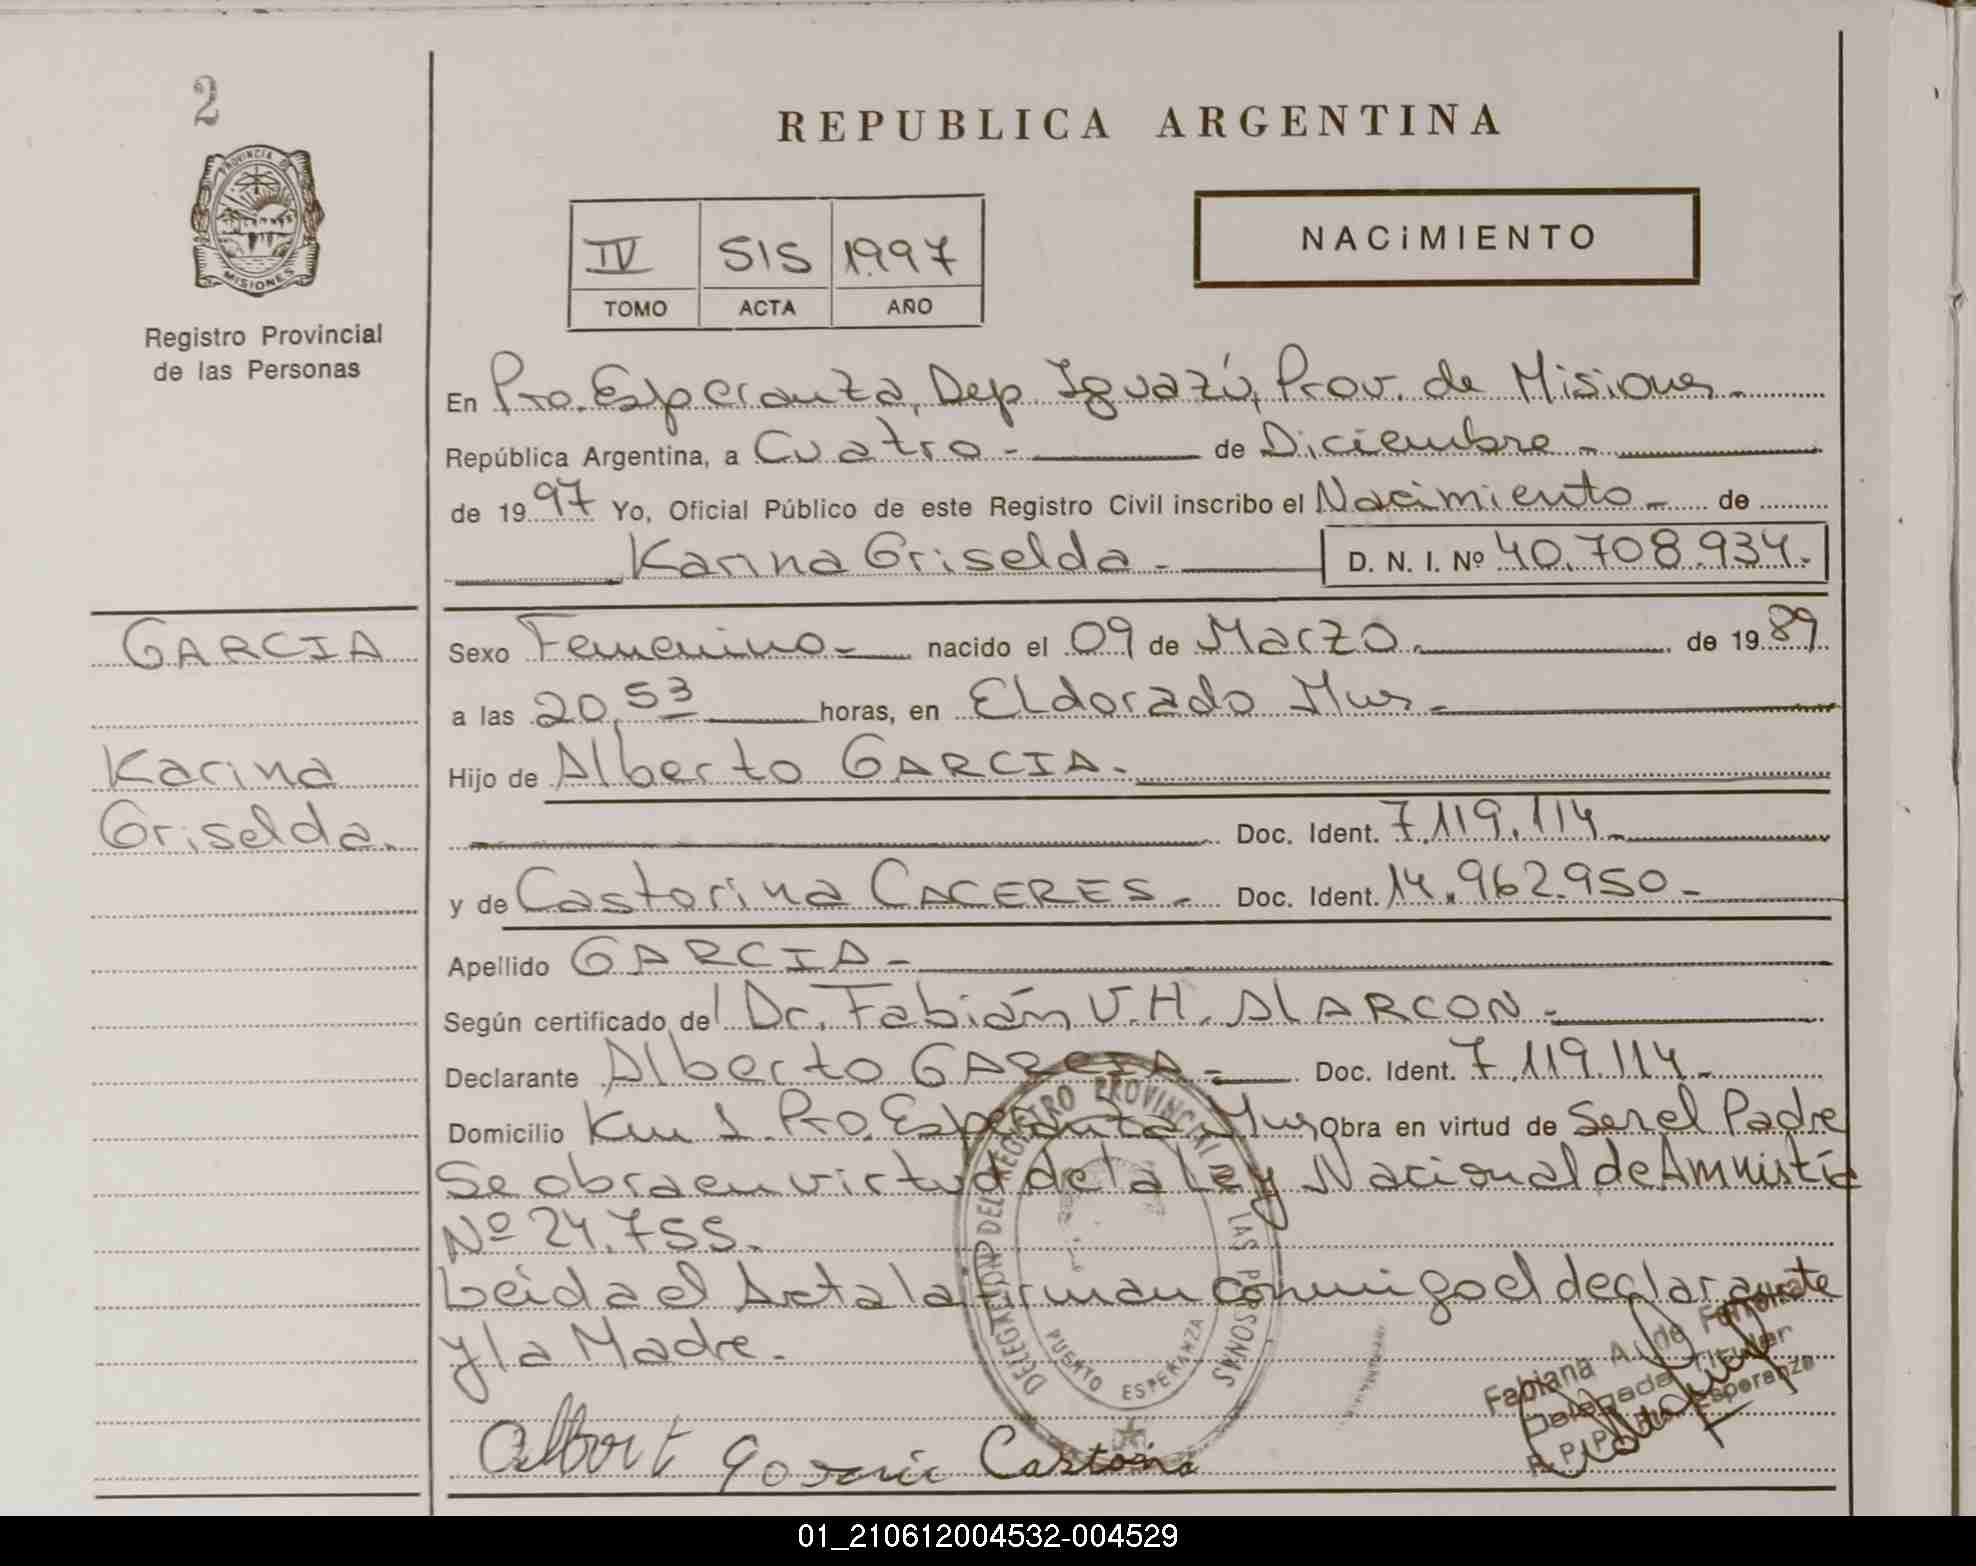 2
PROVINCIA DE
MISIONES
Registro Provincial
de las Personas
REPUBLICA ARGENTINA
IV 515 1997
TOMO ACTA AÑO
NACiMIENTO
En Pto. Esperanza, Dep. Iguazú, Prov. de Misiones.-
República Argentina, a Cuatro.- de Diciembre.-
de 1997 Yo, Oficial Público de este Registro Civil inscribo el Nacimiento.- de
Karina Griselda.- D. N. I. Nº 40.708.934.-
GARCIA
Karina
Griselda.
Sexo Femenino.- nacido el 09 de Marzo.- de 1989
a las 20,53 horas, en ELdorado Mnes.-
Hijo de Alberto GARCIA.-
Doc. Ident. 7.119.114.-
y de Castorina CACERES.- Doc. Ident. 14.962.950.-
Apellido GARCIA.-
Según certificado del Dr. Fabián V.H. ALARCON.-
Declarante Alberto GARCIA.- Doc. Ident. 7.119.114.-
Domicilio Km 1 Pto. Esperanza Mnes Obra en virtud de Ser el Padre
Se obra en virtud de la Ley Nacional de Amnistía
Nº 24.755.
Leida el Acta la firman conmigo el declarante
y la Madre.-
DELEGACION DEL REGISTRO PROVINCIAL DE LAS PERSONAS
PUERTO ESPERANZA
Albert
Castorina
Fabiana A. de
Delegada Titular
R. P. P. Pto. Esperanza
01_210612004532-004529